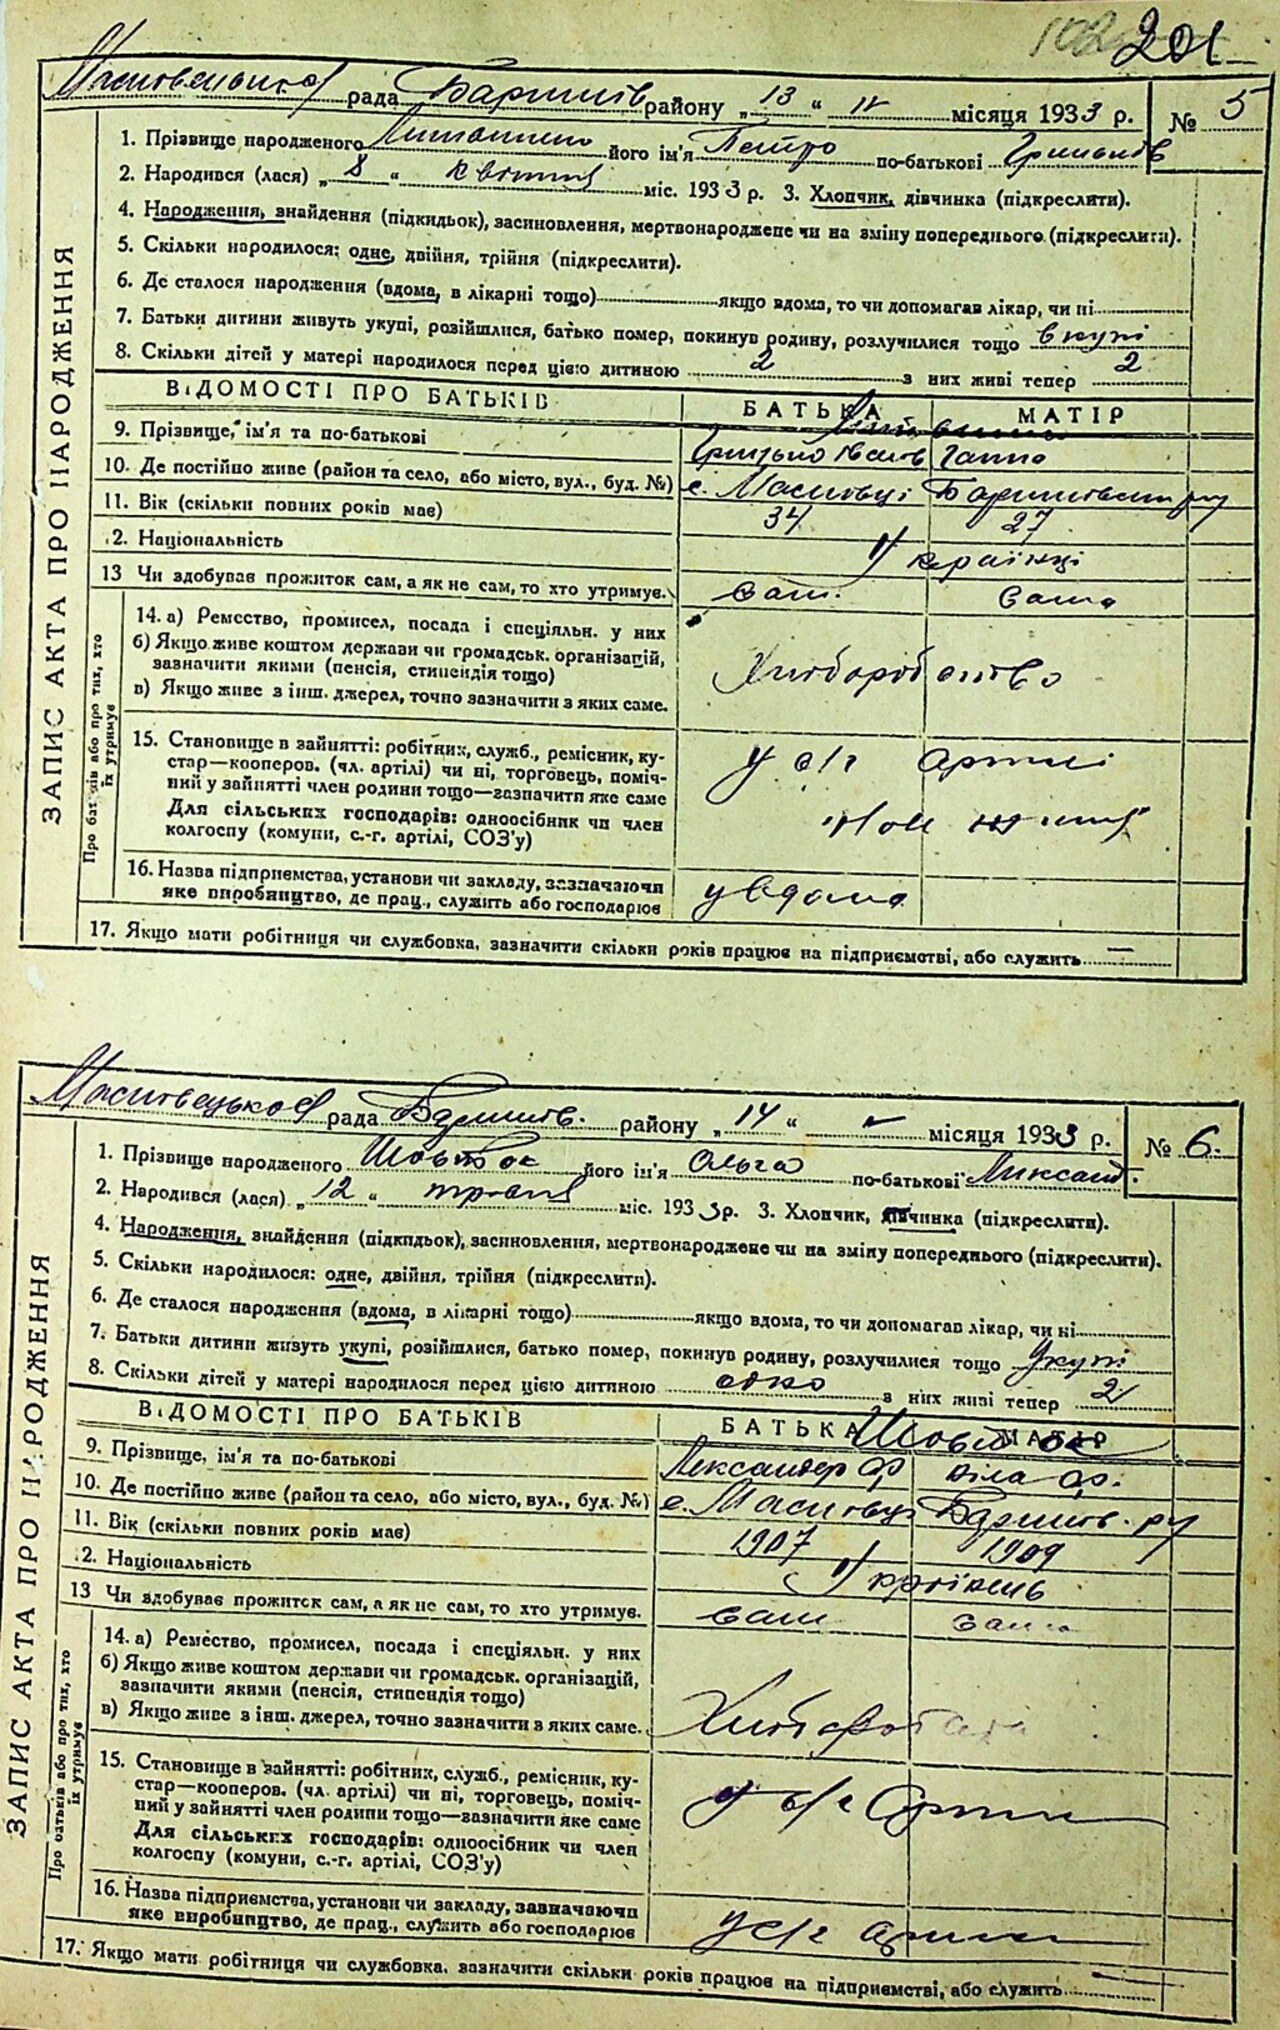 102 201
рада Баришів району „ 13 “ IV місяця 1933 р. № 5
1. Прізвище народженого його ім'я Петро по-батькові Грицьків
2. Народився (лася) „ 8 “ квітня міс. 1933 р. 3. Хлопчик, дівчинка (підкреслити).
4. Народження, знайдення (підкидьок), засиновлення, мертвонароджене чи на зміну попереднього (підкреслити).
5. Скільки народилося: одне, двійня, трійня (підкреслити).
6. Де сталося народження (вдома, в лікарні тощо) якщо вдома, то чи допомагав лікар, чи ні
7. Батьки дитини живуть укупі, розійшлися, батько помер, покинув родину, розлучилися тощо вкупі
8. Скільки дітей у матері народилося перед цією дитиною 2 з них живі тепер 2
ВІДОМОСТІ ПРО БАТЬКІВ БАТЬКА МАТІР
9. Прізвище, ім'я та по-батькові Грицько Іванов Ганна
10. Де постійно живе (район та село, або місто, вул., буд. №) с. Масківці Баришівськ р-ну
11. Вік (скільки повних років має) 34 27
12. Національність Українці
13 Чи здобував прожиток сам, а як не сам, то хто утримує. сам. сама
14. а) Ремество, промисел, посада і спеціяльн. у них
б) Якщо живе коштом держави чи громадськ. організацій,
зазначити якими (пенсія, стипендія тощо) Хліборобство
в) Якщо живе з інш. джерел, точно зазначити з яких саме.
15. Становище в зайнятті: робітник, служб., ремісник, ку-
стар—кооперов. (чл. артілі) чи ні, торговець, поміч- у с/г артілі
ний у зайнятті член родини тощо—зазначити яке саме
Для сільських господарів: одноосібник чи член
колгоспу (комуни, с.-г. артілі, СОЗ'у)
16. Назва підприємства, установи чи закладу, зазначаючи
яке виробництво, де прац., служить або господарює
17. Якщо мати робітниця чи службовка, зазначити скільки років працює на підприємстві, або служить —
ЗАПИС АКТА ПРО НАРОДЖЕННЯ
Про батьків або про тих, хто
їх утримує
рада Баришів. району „ 14 “ V місяця 1933 р. № 6.
1. Прізвище народженого Шовток його ім'я Ольга по-батькові Ликсанд.
2. Народився (лася) „ 12 “ травня міс. 1933 р. 3. Хлопчик, дівчинка (підкреслити).
4. Народження, знайдення (підкидьок), засиновлення, мертвонароджене чи на зміну попереднього (підкреслити).
5. Скільки народилося: одне, двійня, трійня (підкреслити).
6. Де сталося народження (вдома, в лікарні тощо) якщо вдома, то чи допомагав лікар, чи ні
7. Батьки дитини живуть укупі, розійшлися, батько помер, покинув родину, розлучилися тощо Укупі
8. Скільки дітей у матері народилося перед цією дитиною одно з них живі тепер 2
ВІДОМОСТІ ПРО БАТЬКІВ БАТЬКА МАТІР
Шовток
9. Прізвище, ім'я та по-батькові Ликсандер Ф
10. Де постійно живе (район та село, або місто, вул., буд. №) с. Масківці Баришів. р-ну
11. Вік (скільки повних років має) 1907 1909
12. Національність Українець
13 Чи здобував прожиток сам, а як не сам, то хто утримує. сам сама
14. а) Ремество, промисел, посада і спеціяльн. у них
б) Якщо живе коштом держави чи громадськ. організацій,
зазначити якими (пенсія, стипендія тощо)
в) Якщо живе з інш. джерел, точно зазначити з яких саме.
15. Становище в зайнятті: робітник, служб., ремісник, ку-
стар—кооперов. (чл. артілі) чи ні, торговець, поміч- у с/г Артілі
ний у зайнятті член родини тощо—зазначити яке саме
Для сільських господарів: одноосібник чи член
колгоспу (комуни, с.-г. артілі, СОЗ'у)
16. Назва підприємства, установи чи закладу, зазначаючи
яке виробництво, де прац., служить або господарює у с/г артілі
17. Якщо мати робітниця чи службовка, зазначити скільки років працює на підприємстві, або служить —
ЗАПИС АКТА ПРО НАРОДЖЕННЯ
Про батьків або про тих, хто
їх утримує